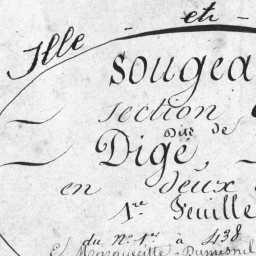 Ille - et -
Sougea
Section
Dite de
Digé,
en deux
1re Feuille
du No. 1er à 438